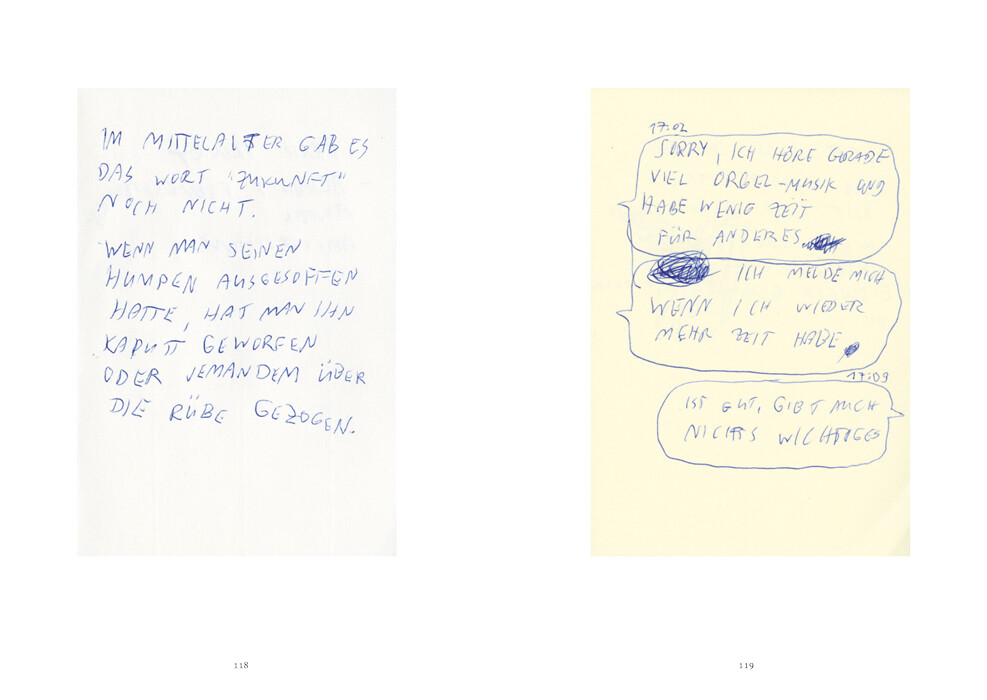 IM MITTELALTER GAB ES
DAS WORT "ZUKUNFT"
NOCH NICHT.
WENN MAN SEINEN
HUMPEN AUSGESOFFEN
HATTE, HAT MAN IHN
KAPUTT GEWORFEN
ODER JEMANDEM ÜBER
DIE RÜBE GEZOGEN.
118
17:02
SORRY, ICH HÖRE GERADE
VIEL ORGEL-MUSIK UND
HABE WENIG ZEIT
FÜR ANDERES
ICH MELDE MICH
WENN ICH WIEDER
MEHR ZEIT HABE
17:09
IST GUT, GIBT AUCH
NICHTS WICHTIGES
119